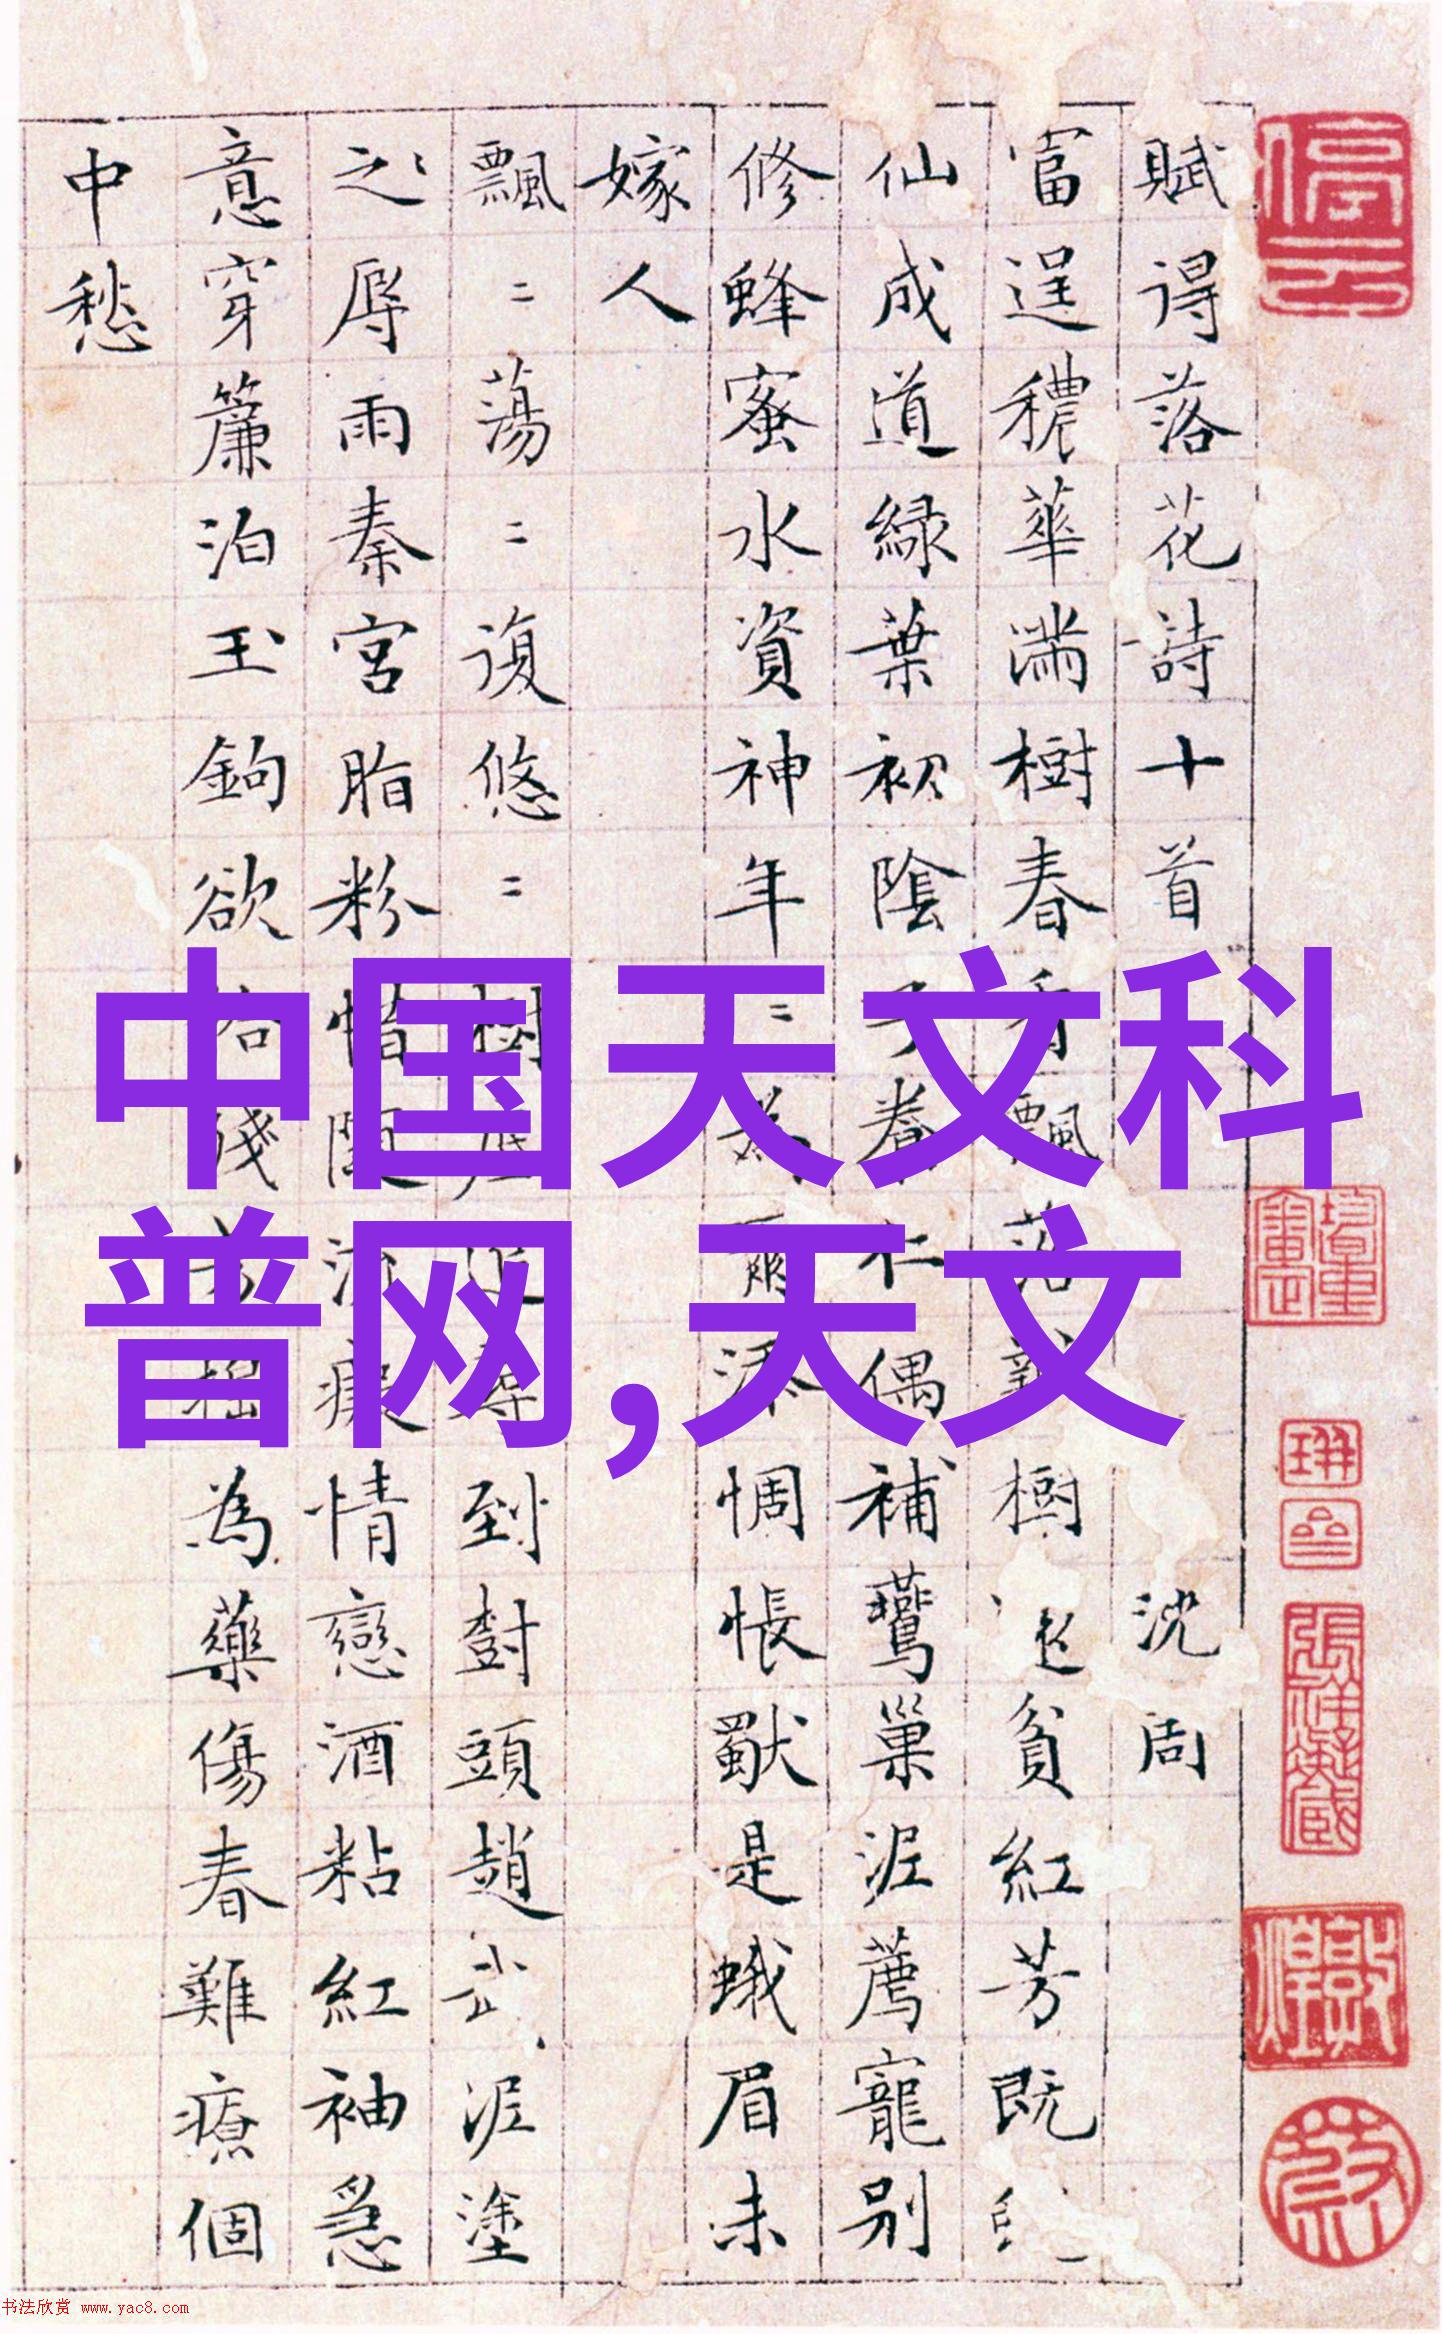 賦得落花詩十首 沈周
富逞穠華滿樹春香飄落樹貧紅芳既
仙成道綠葉初陰子養仁偶補鷰巢泥薦寵別
修蜂蜜水資神年〻為爾添惆悵獨是蛾眉未
嫁人
飄〻蕩〻復悠〻樹底追尋到樹頭趙武泥塗
之辱雨秦宮脂粉惜隨流癡情戀酒粘紅袖急
意穿簾泊玉鉤欲拾殘芳搗為藥傷春難療個
中愁
中国天文科
普网,天文
书法欣赏 www.yac8.com